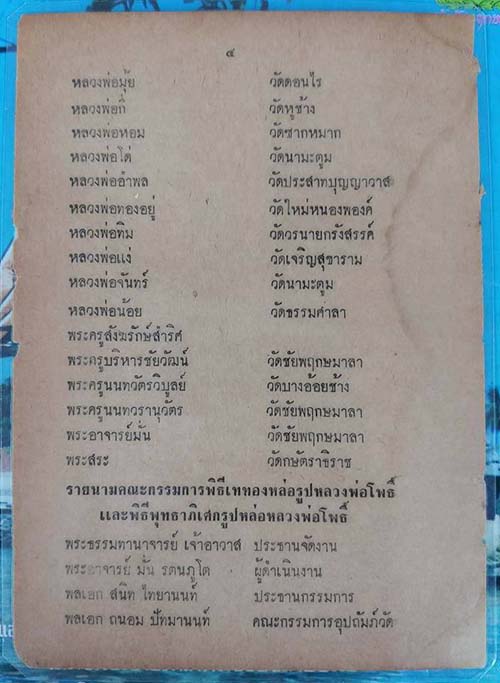 ๔
หลวงพ่อมุ่ย วัดดอนไร
หลวงพ่อกี๋ วัดหูช้าง
หลวงพ่อหอม วัดซากหมาก
หลวงพ่อโด่ วัดนามะตูม
หลวงพ่ออำพล วัดประสาทบุญญาวาส
หลวงพ่อทองอยู่ วัดใหม่หนองพองค์
หลวงพ่อทิม วัดวรนายกรังสรรค์
หลวงพ่อแง่ วัดเจริญสุขาราม
หลวงพ่อจันทร์ วัดนามะตูม
หลวงพ่อน้อย วัดธรรมศาลา
พระครูสังฆรักษ์สำริศ
พระครูบริหารชัยวัฒน์ วัดชัยพฤกษมาลา
พระครูนนทวัตรวิบูลย์ วัดบางอ้อยช้าง
พระครูนนทวรานุวัตร วัดชัยพฤกษมาลา
พระอาจารย์มั่น วัดชัยพฤกษมาลา
พระสระ วัดกษัตราธิราช
รายนามคณะกรรมการพิธีเททองหล่อรูปหลวงพ่อโพธิ์
และพิธีพุทธาภิเศกรูปหล่อหลวงพ่อโพธิ์
พระธรรมทานาจารย์ เจ้าอาวาส ประธานจัดงาน
พระอาจารย์ มั่น รตนภูโต ผู้ดำเนินงาน
พลเอก สนิท ไทยานนท์ ประธานกรรมการ
พลเอก ถนอม ปัทมานนท์ คณะกรรมการอุปถัมภ์วัด